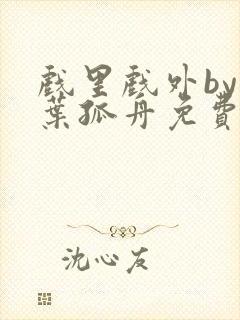 戲里戲外by
葉孤舟免費
沈心友